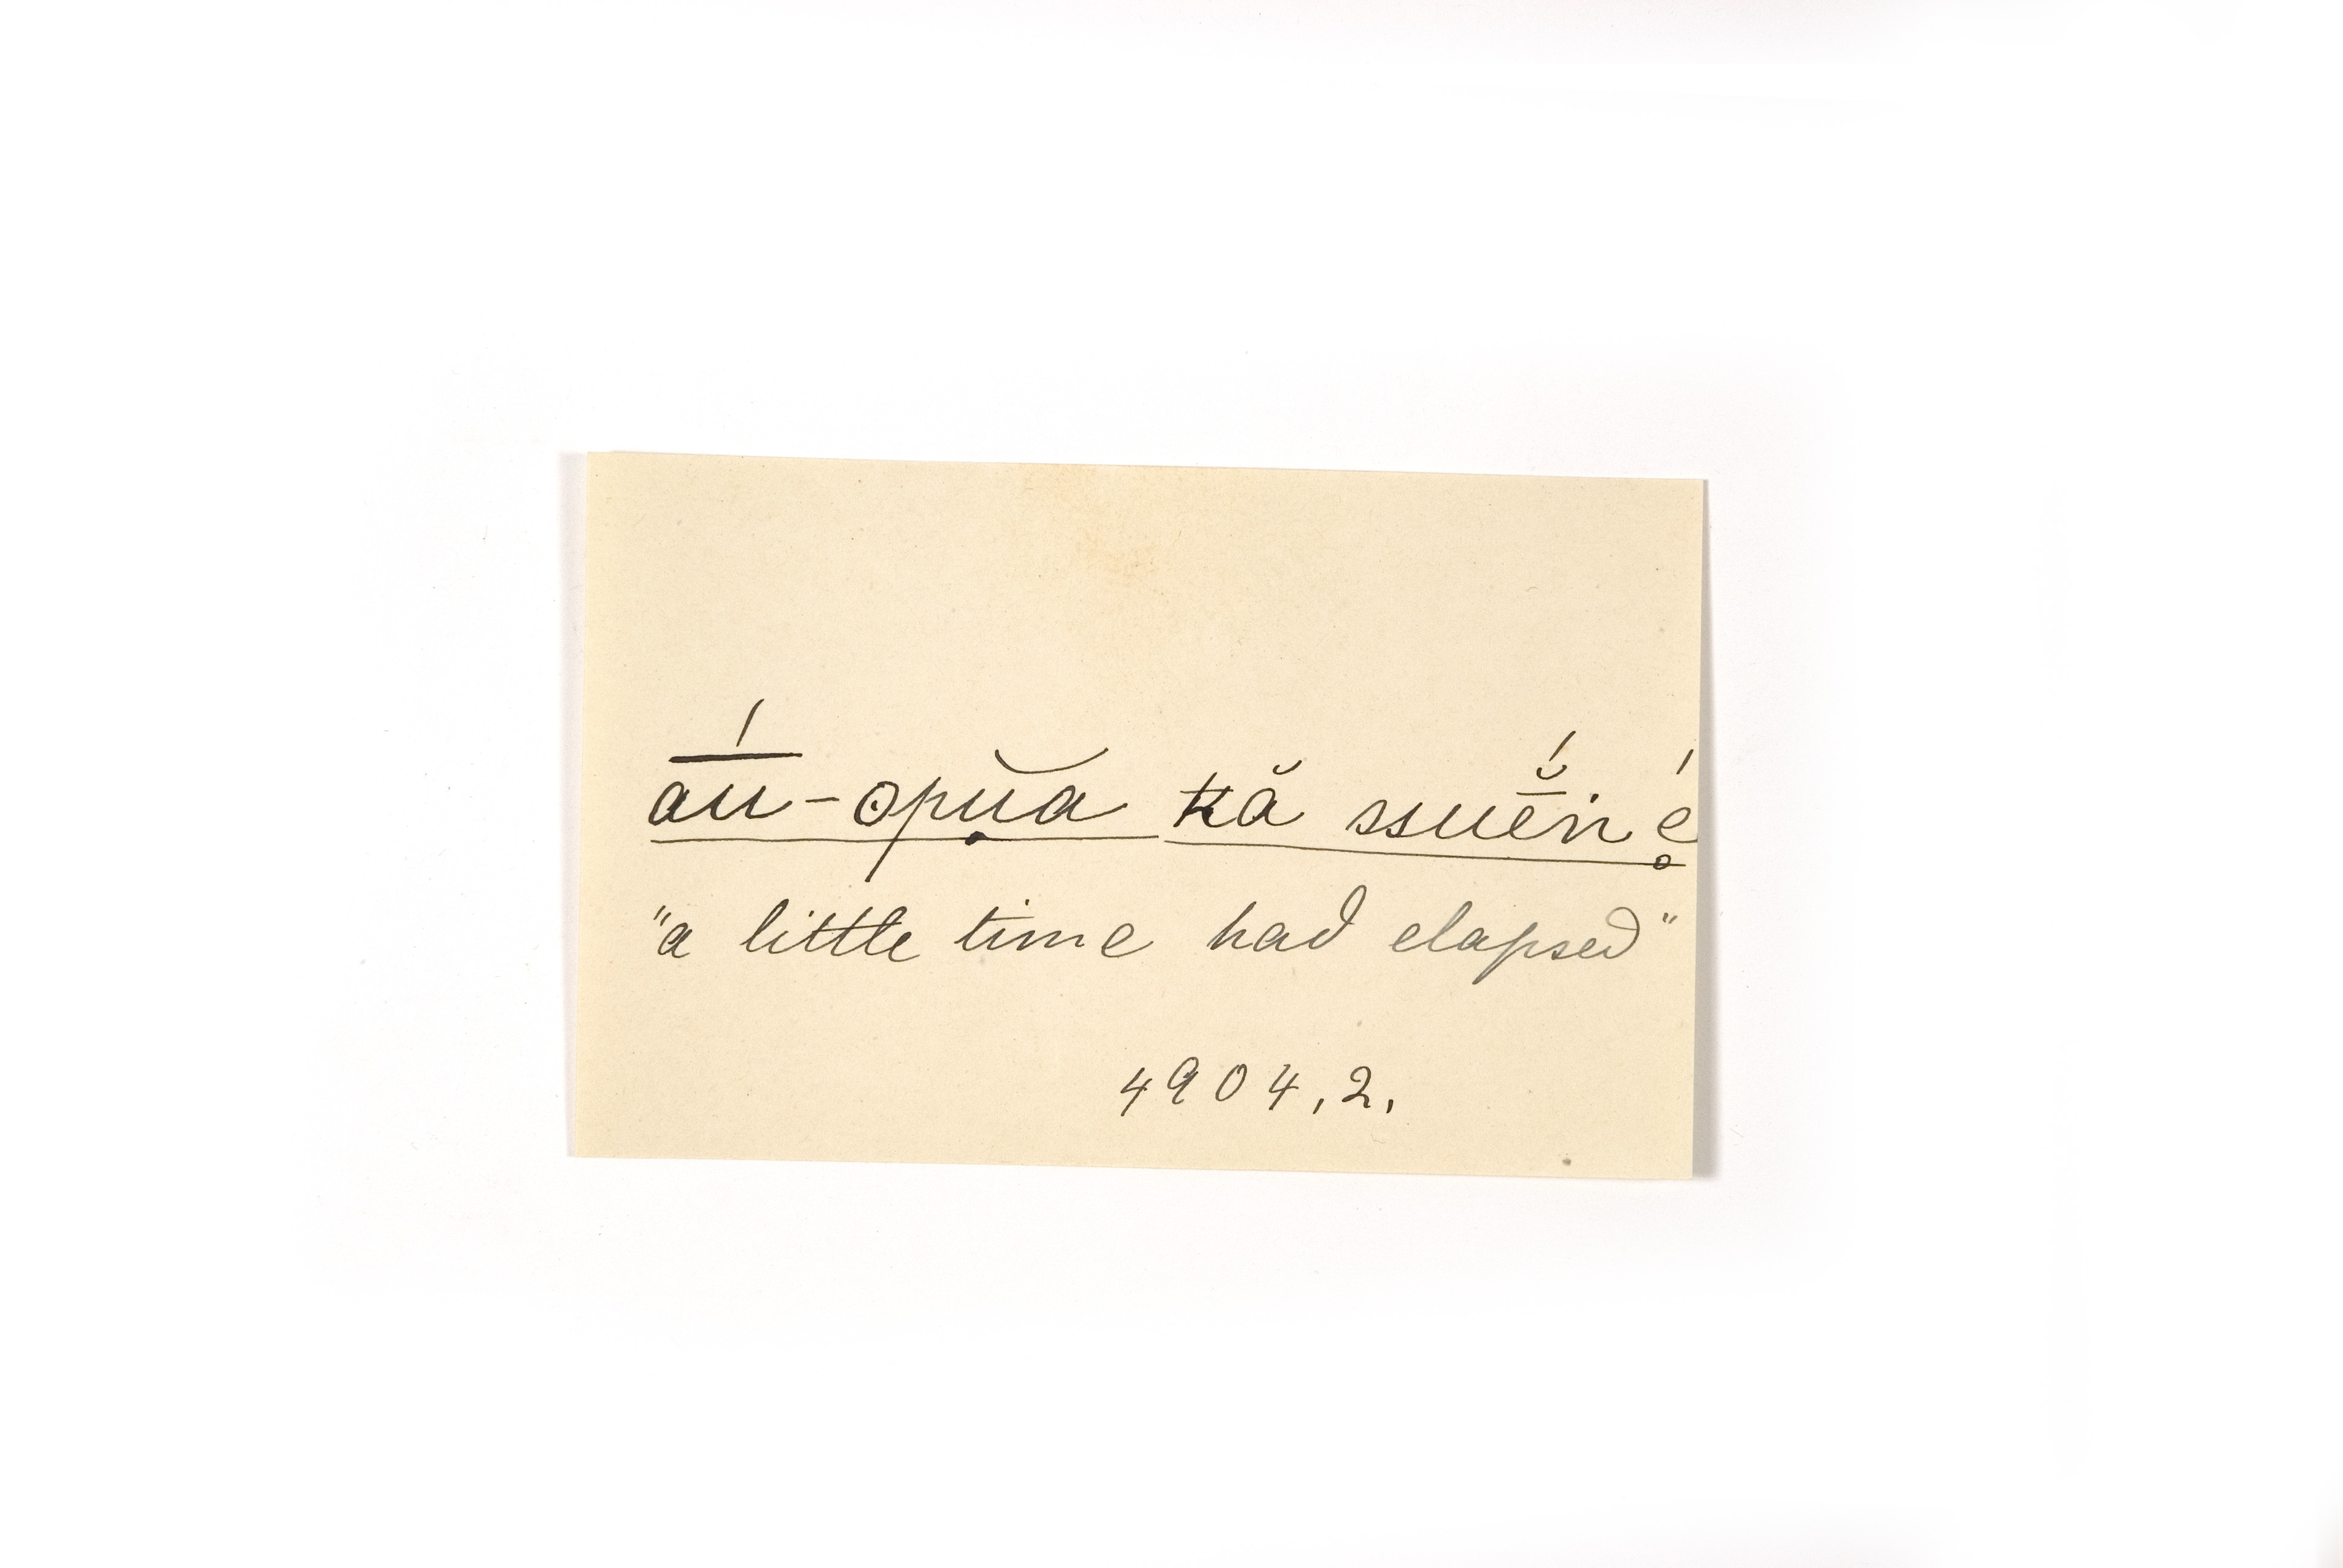 a͞úu-opu͝a kă ssuḗ̆ni é̥
"a little time had elapsed"
4904,2.